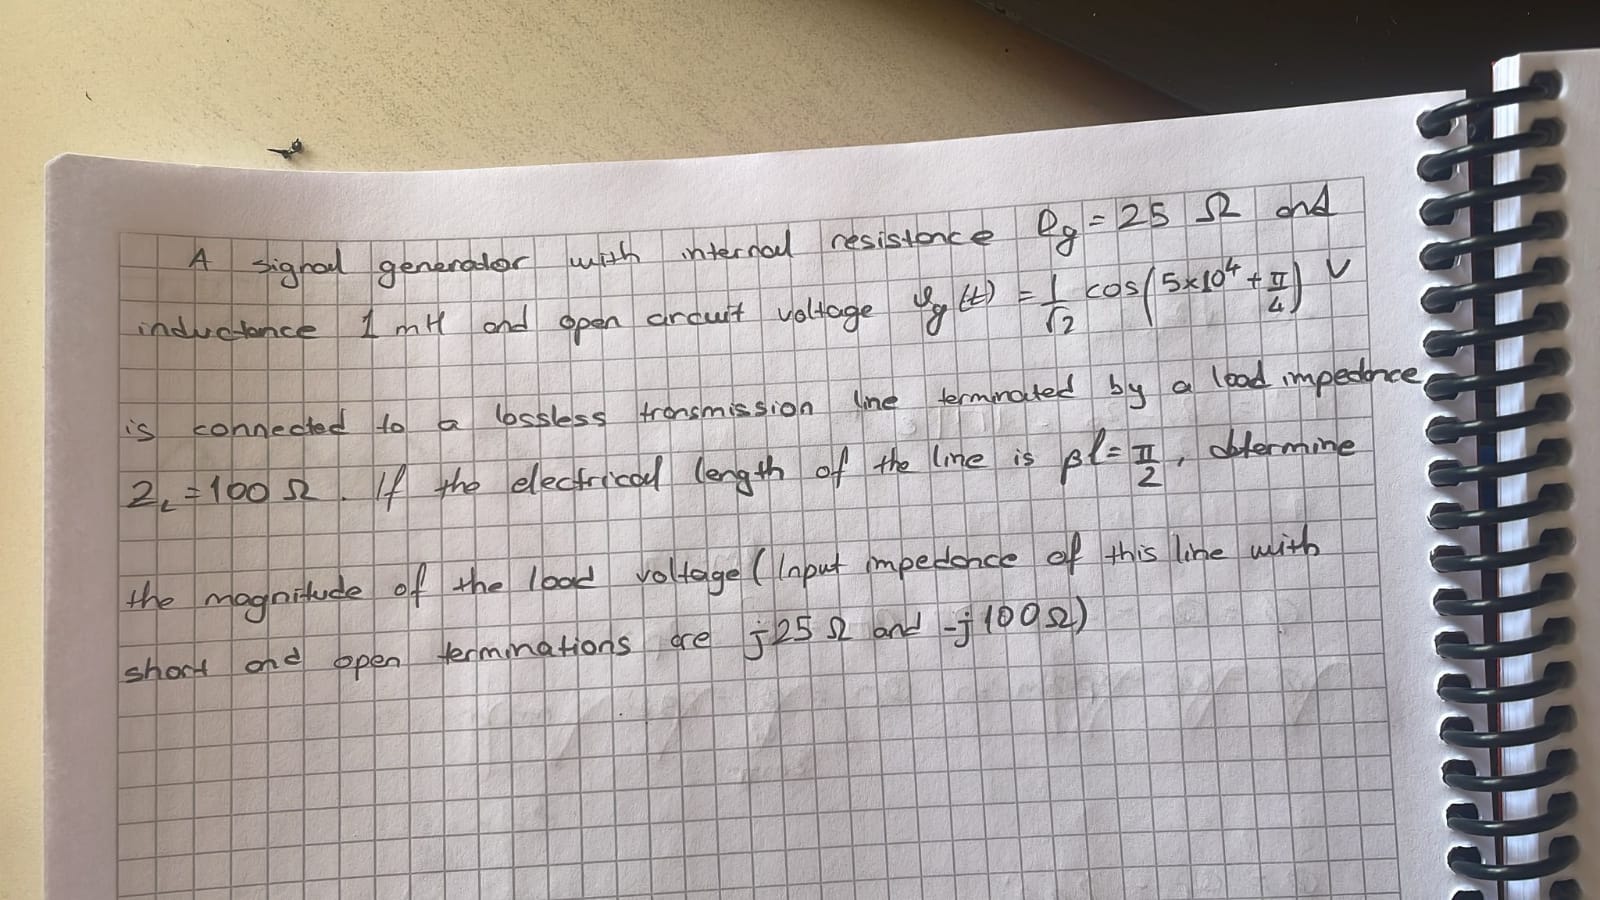 A signal generator with internal resistance Rg = 25 Ω and
inductance 1 mH and open circuit voltage vg(t) = 1/√2 cos(5×10⁴ + π/4) V
is connected to a lossless transmission line terminated by a load impedance
ZL = 100 Ω. If the electrical length of the line is βl = π/2, determine
the magnitude of the load voltage (Input impedance of this line with
short and open terminations are j25 Ω and -j100 Ω)